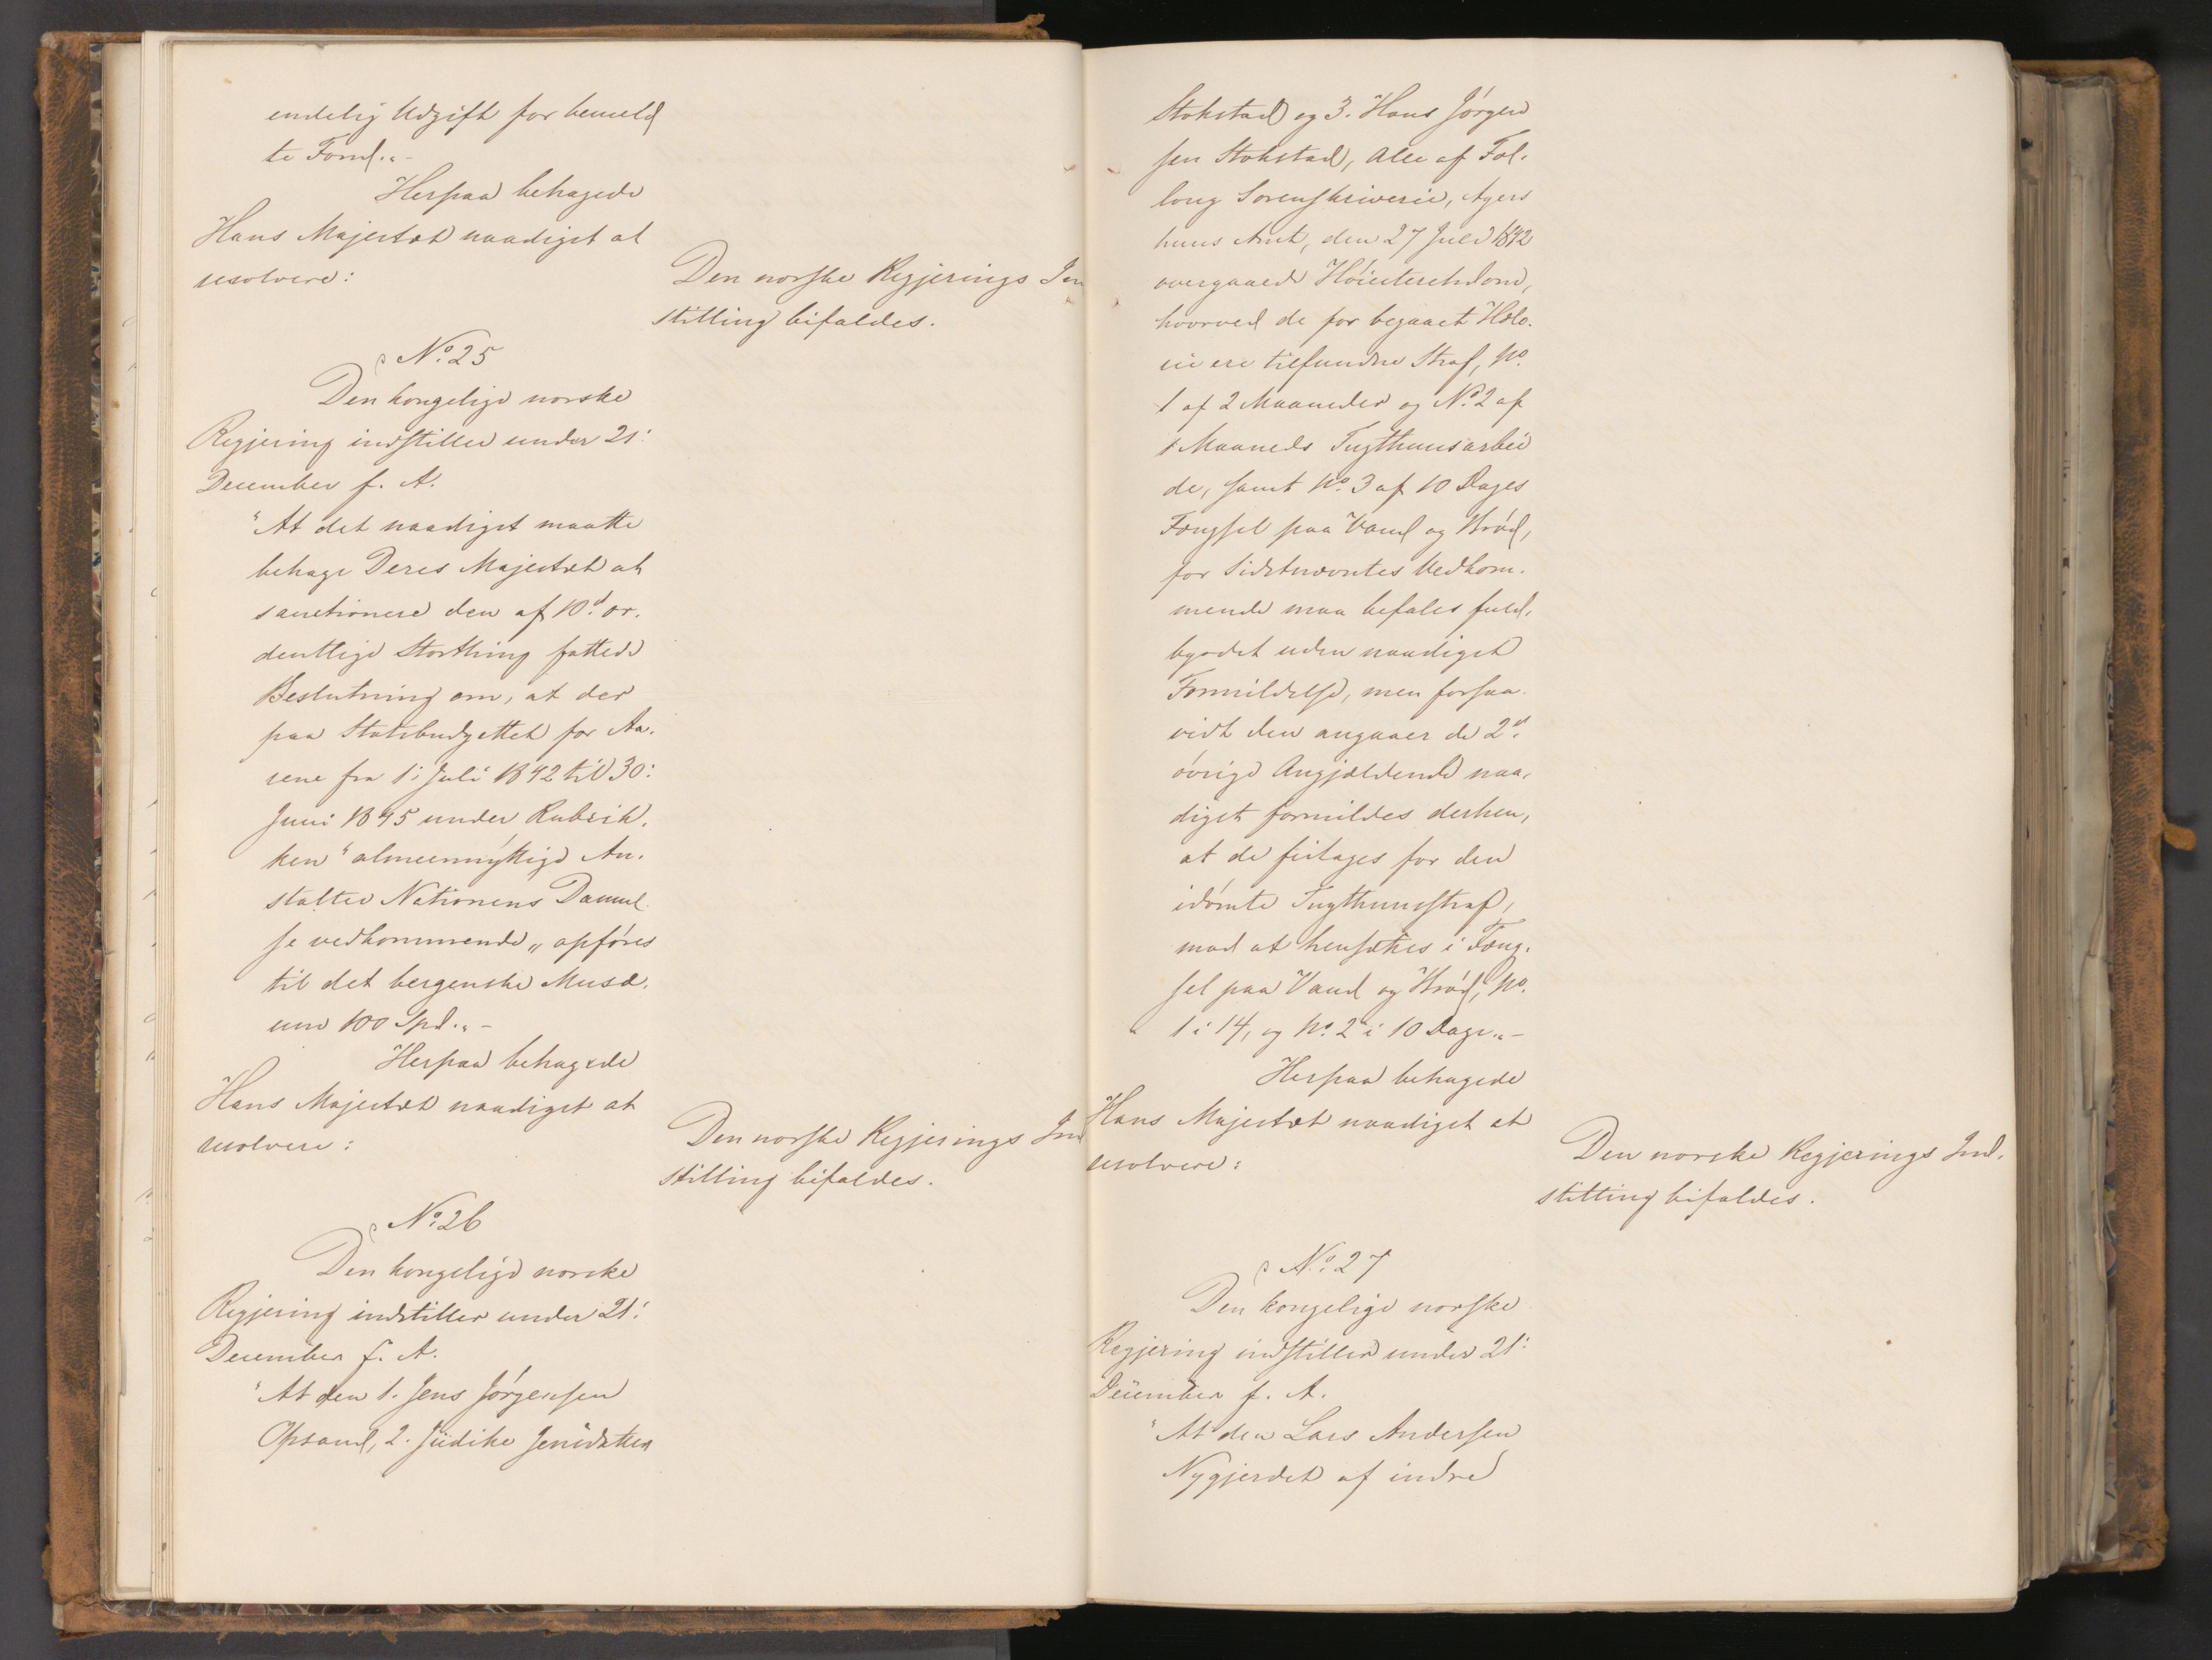 endelig Udgift for bemeld
te Fond."-
Herpaa behagede
Hans Majestæt naadigst at
resolvere:
Den norske Regjerings In
stilling bifaldes.
No. 25
Den kongelige norske
Regjering indstiller under 21:
December f. A.
"At det naadigst maatte
behage Deres Majestæt at
sanctionere den af 10.d or.
denttlige Storthing fattede
Beslutning om, at der
paa Statsbudgettet for Aa.
rene fra 1: Juli 1842 til 30:
Juni 1845 under Rubrik.
ken "almeennyttige An.
stalter Nationens Dannel.
se vedkommende" opføres
til det bergenske Musæ.
um 100 Spd."-
Herpaa behagede
Hans Majestæt naadigst at
resolvere:
Den norske Regjerings Ind
stilling bifaldes.
No. 26
Den kongelige norske
Regjering indstiller under 21:
December f. A.
"At den 1. Jens Jørgensen
Opsand, 2. Jüdithe Jensdatter
Stokstad og 3. Hans Jørgen
sen Stokstad, Alle af Fol.
loug Sorenskriverie, Agers
huus Amt, den 27 Juli 1842
overgaaede Høiesteretsdom,
hvorved de for begaaet Hæle.
rie ere tilfundne Straf, No.
1 af 2 Maaneder og No. 2 af
1 Maaneds Tugthuusarbei
de, samt No. 3 af 10 Dages
Fængsel paa Vand og Brød,
for Sidstnævntes Vedkom.
mende maa befales fuld.
byrdet uden naadigst
Formildelse, men forsaa.
vidt den angaaer de 2.d
øvrige Angjældende naa.
digst formildes derhen,
at de fritages for den
idømte Tugthuusstraf,
mod at hensættes i Fæng.
sel paa Vand og Brød, No.
1 i 14, og No. 2 i 10 Dage."-
Herpaa behagede
Hans Majestæt naadigst at
resolvere:
Den norske Regjerings Ind.
stilling bifaldes.
No. 27
Den kongelige norske
Regjering indstiller under 21:
December f. A.
"At den Lars Andersen
Nygjerdet af indre